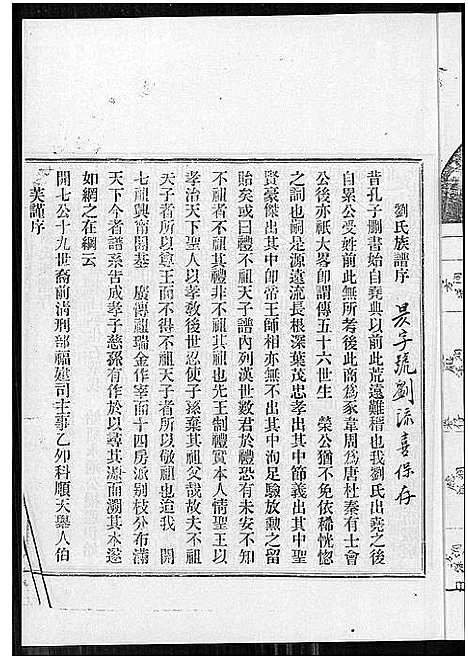 劉氏族譜序
昔孔子刪書始自堯典以前此荒遠難稽也我劉氏出堯之後
自累公受姓前此無所考後此商爲家韋周爲唐杜秦有士會
公後亦祇大畧卽謂傳五十六世生 榮公猶不免依稀恍惚
之詞也嗣是源遠流長根深葉茂忠孝出其中節義出其中聖
賢豪傑出其中卽帝王師相亦無不出其中洵足驗放勳之留
貽矣或曰禮不祖天子譜內列漢世數君於禮恐有未安不知
不祖者不祖其禮非不祖其人也先王制禮實本人情聖王以
孝治天下聖人以孝教後世忍使子孫棄其祖父哉故夫不祖
天子者所以尊王而不得不祖天子者所以敬祖也迨我 開
七祖興甯開基 廣傳祖瑞金作宰而十四房派别枝分布滿
天下今者譜系告成孝子慈孫有作於以尋其源而溯其本遂
如網之在綱云
開七公十九世裔前清刑部福建司主事乙夘科順天舉人伯
芙謹序
劉添喜保存